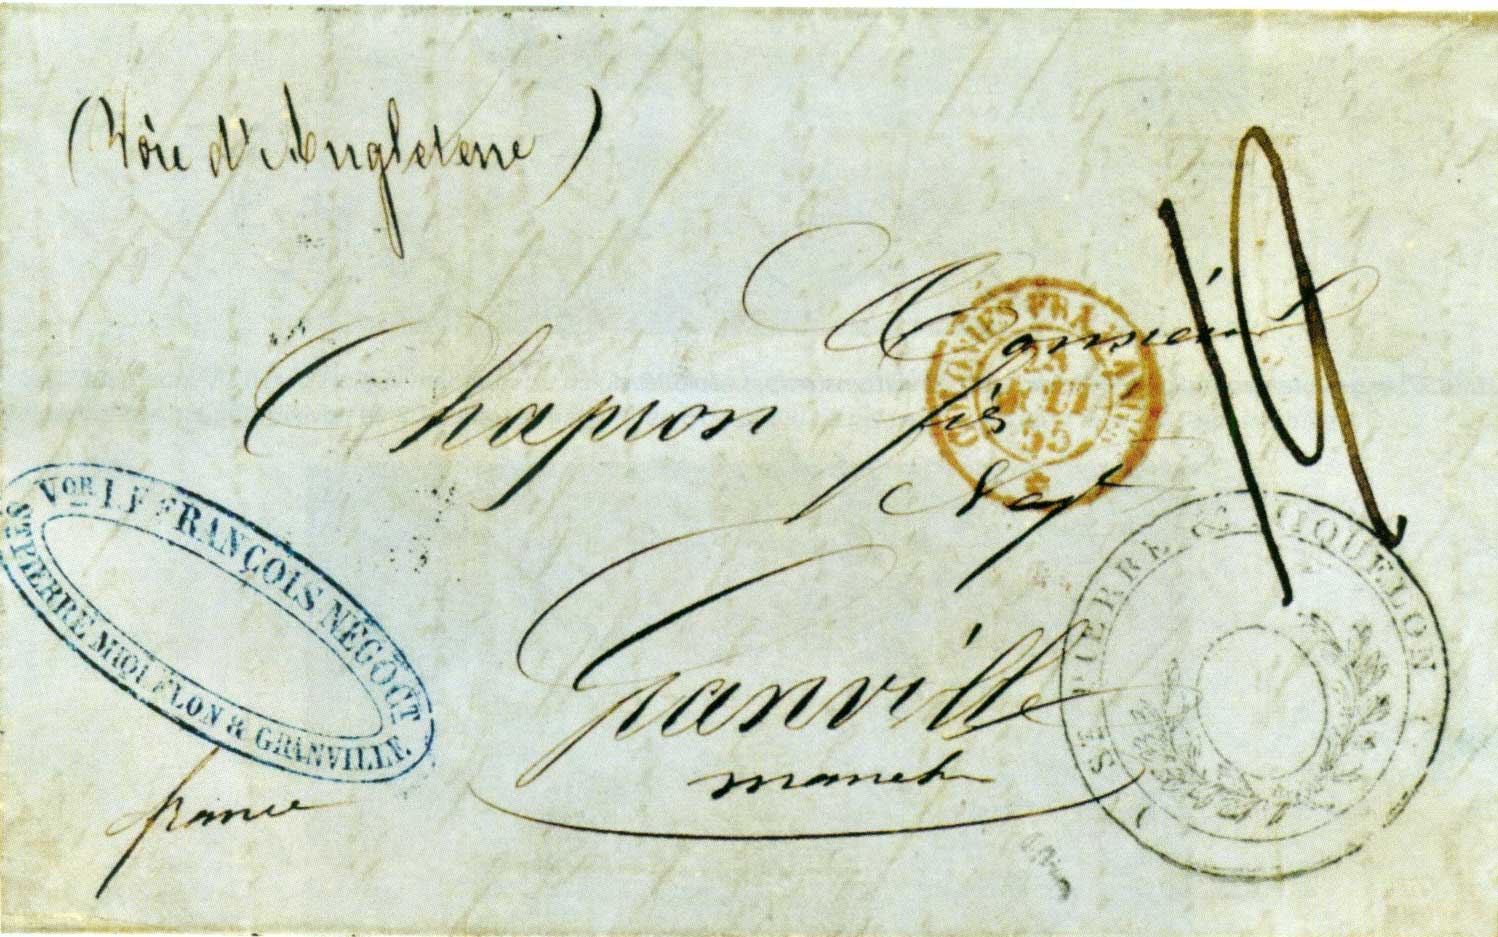 (Voie d'Angleterre)
Monsieur
Chapron fils
Negt
Granville
manche
france
COLONIES FRANÇAISES
AOUT
55
VOR J.F FRANÇOIS NÉGOCT
ST PIERRE MIQUELON & GRANVILLE.
ST PIERRE & MIQUELON